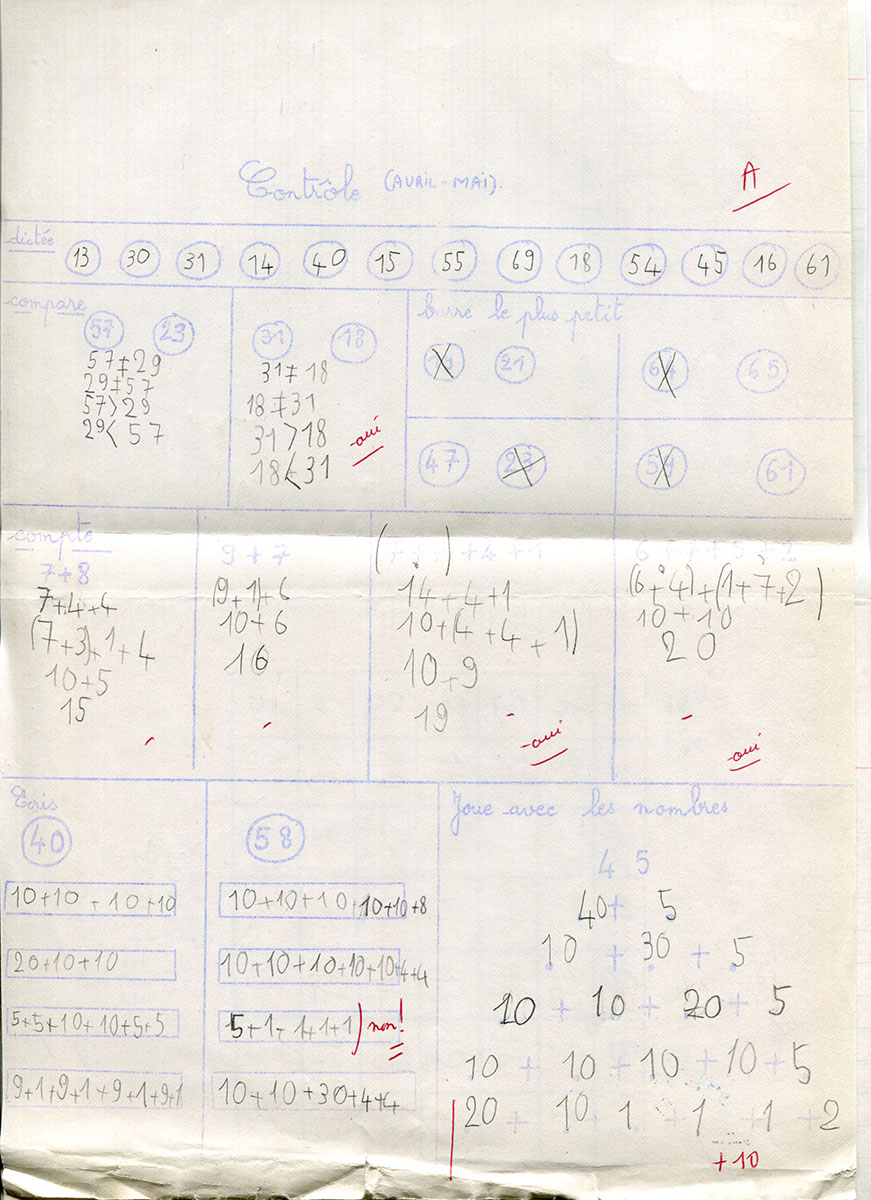 Contrôle (AVRIL-MAI).
A
dictée 13 30 31 14 40 15 55 69 18 54 45 16 61
compare
57 29
57≠29
29≠57
57>29
29<57
31 18
31≠18
18≠31
31>18
18<31
oui
barre le plus petit
21
64 65
47 23
54 61
compte
7+8
7+4+4
(7+3)+1+4
10+5
15
9+7
(9+1)+6
10+6
16
+4+1
14+4+1
10+(4+4+1)
10+9
19
oui
6+7+5+2
(6+4)+(1+7+2)
10+10
20
oui
Ecris
40
10+10+10+10
20+10+10
5+5+10+10+5+5
9+1+9+1+9+1+9+1
58
10+10+10+10+10+8
10+10+10+10+10+4+4
5+1+1+1+1) non!
10+10+30+4+4
Joue avec les nombres
45
40+5
10+30+5
10+10+20+5
10+10+10+10+5
20+10 1+1+1+2
+10